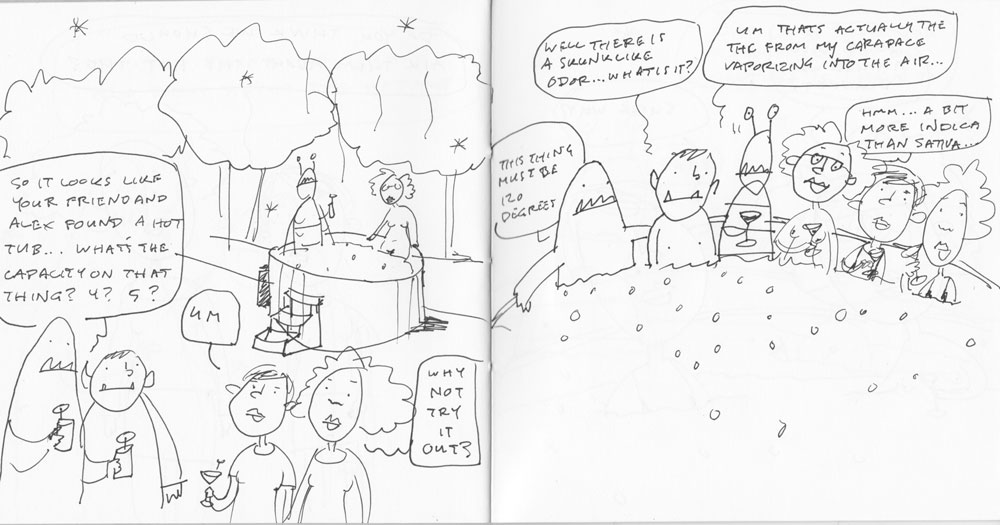 SO IT LOOKS LIKE
YOUR FRIEND AND
ALEX FOUND A HOT
TUB... WHAT'S THE
CAPACITY ON THAT
THING? 4? 5?
UM
WHY
NOT
TRY
IT
OUT?
THIS THING
MUST BE
120
DEGREES
WELL THERE IS
A SKUNKLIKE
ODOR... WHAT IS IT?
UM THATS ACTUALLY THE
THC FROM MY CARAPACE
VAPORIZING INTO THE AIR...
HMM... A BIT
MORE INDICA
THAN SATIVA...